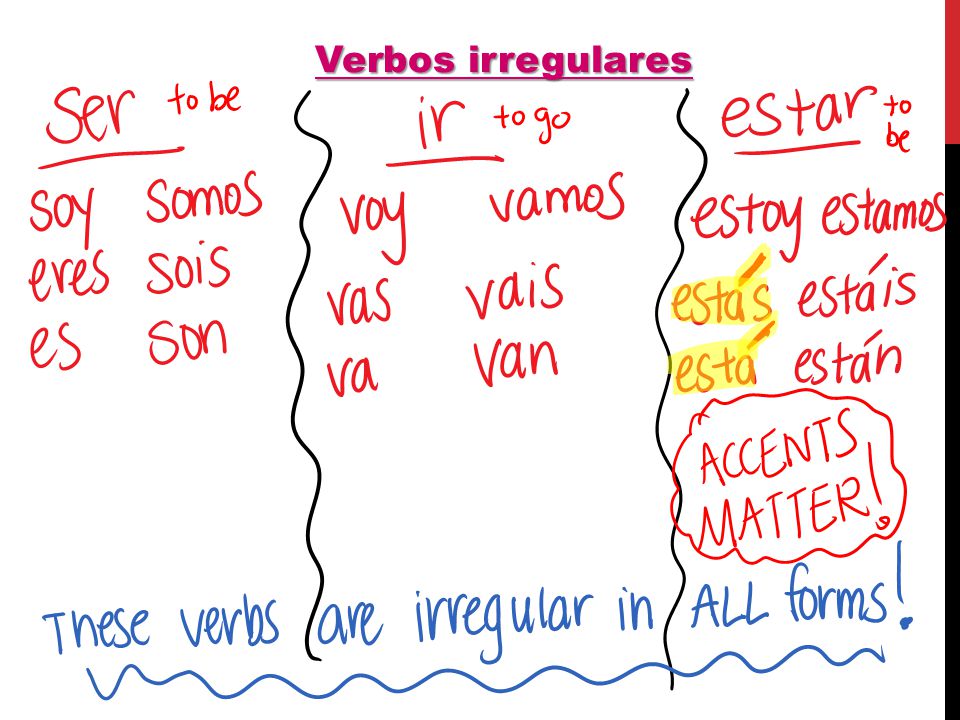 Verbos irregulares
ser to be
soy somos
eres sois
es son
ir to go
voy vamos
vas vais
va van
estar to be
estoy estamos
estás estáis
está están
ACCENTS
MATTER!
These verbs are irregular in ALL forms!